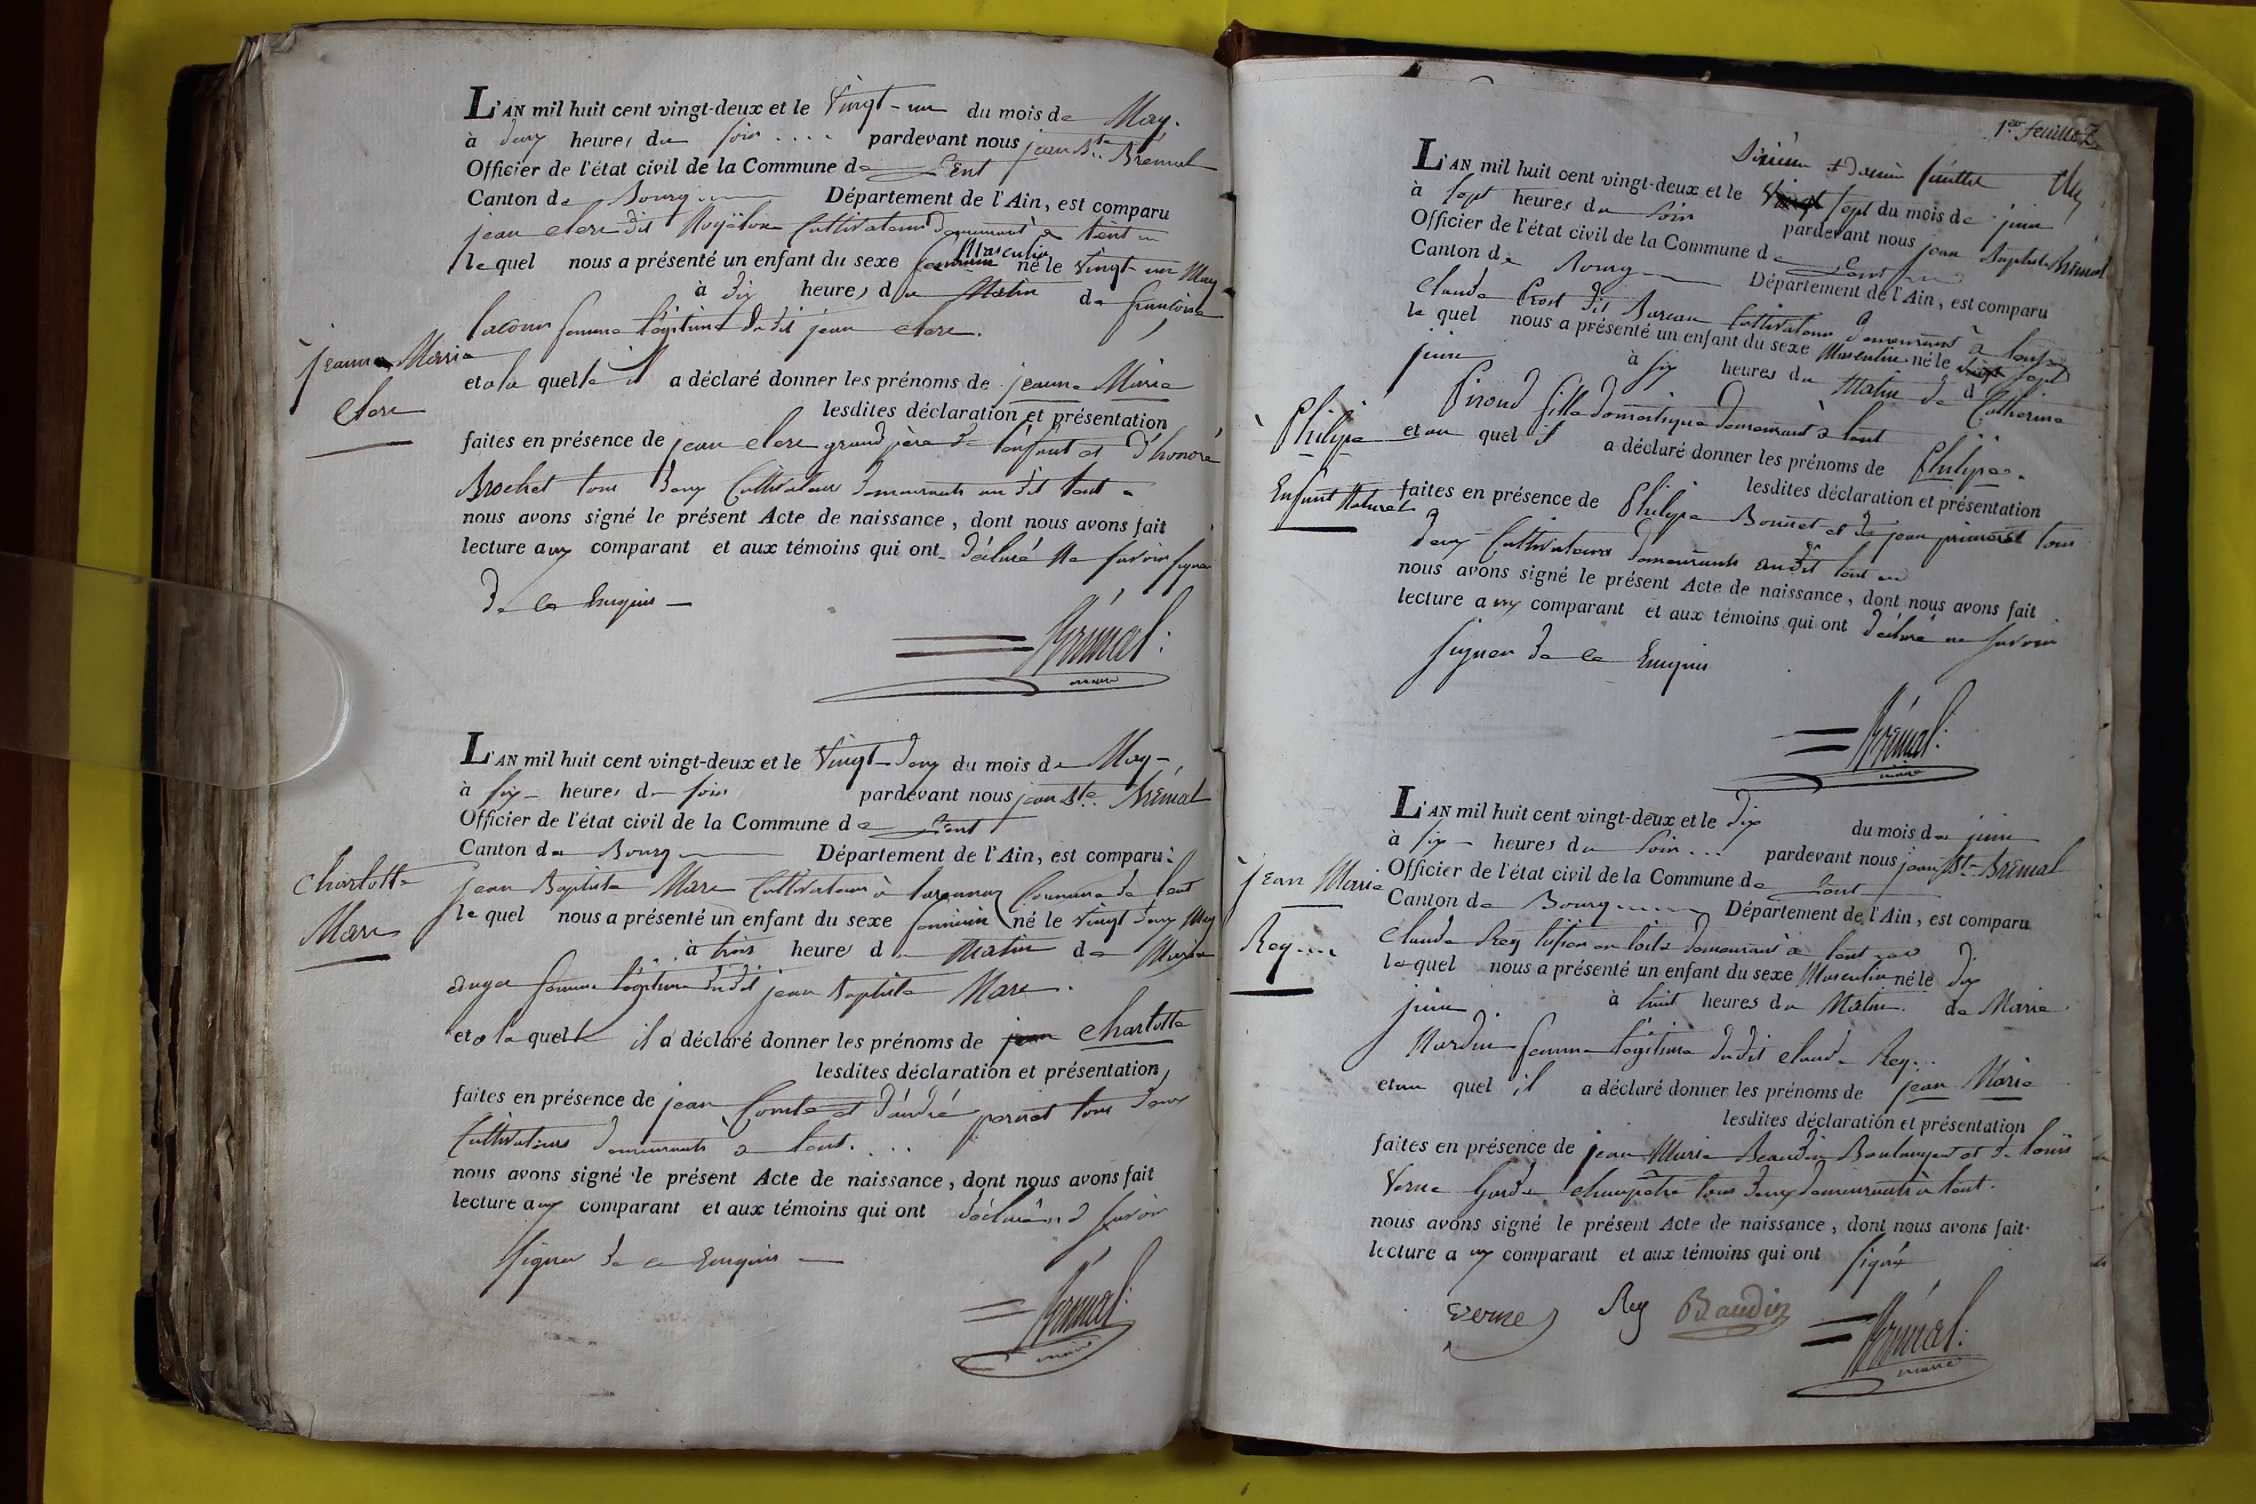 L'AN mil huit cent vingt-deux et le Vingt-un du mois de May.
à deux heures du soir .... pardevant nous jean Bte Brémal
Officier de l'état civil de la Commune de Lent
Canton de Bourg Département de l'Ain, est comparu
jean clere dit cultivateur demeurant à Lent
lequel nous a présenté un enfant du sexe feminin Masculin né le vingt-un May
à dix heures du Matin de françoise
femme légitime du dit jean clere.
jeanne Marie
clere
et a la quelle il a déclaré donner les prénoms de jeanne Marie
lesdites déclaration et présentation
faites en présence de jean clere grand père de l'enfant et d'honoré
Brochet tous deux Cultivateurs demeurants au dit Lent
nous avons signé le présent Acte de naissance, dont nous avons fait
lecture aux comparant et aux témoins qui ont déclaré ne savoir signer
de ce Enquis
Brémal.
maire
L'AN mil huit cent vingt-deux et le Vingt-deux du mois de May
à six heures du soir pardevant nous jean Bte Brémal
Officier de l'état civil de la Commune de Lent
Canton de Bourg Département de l'Ain, est comparu:
Charlotte
Mare
jean Baptiste Mare Cultivateur à Commune de Lent
lequel nous a présenté un enfant du sexe feminin né le vingt deux May
à trois heures du Matin de Marie
femme légitime du dit jean Baptiste Mare.
et a la quelle il a déclaré donner les prénoms de jean Charlotte
lesdites déclaration et présentation
faites en présence de jean Comte et d'andré pernet tous deux
Cultivateurs demeurants à Lent....
nous avons signé le présent Acte de naissance, dont nous avons fait
lecture aux comparant et aux témoins qui ont déclaré ne savoir
signer de ce Enquis
Brémal.
maire
1er feuillet
Sixième & dernier feuillet
L'AN mil huit cent vingt-deux et le Vingt sept du mois de juin
à sept heures du soir pardevant nous jean Baptiste Brémal
Officier de l'état civil de la Commune de Lent
Canton de Bourg Département de l'Ain, est comparu
Claude Prost dit Cultivateur demeurant à Lent
lequel nous a présenté un enfant du sexe Masculin né le vingt sept
juin à six heures du Matin de Catherine
Piroud fille domestique demeurant à Lent
Philipe
Enfant Naturel
et au quel il a déclaré donner les prénoms de Philipe.
lesdites déclaration et présentation
faites en présence de Philipe Bonnet et de jean tous
deux Cultivateurs demeurants au dit Lent
nous avons signé le présent Acte de naissance, dont nous avons fait
lecture aux comparant et aux témoins qui ont déclaré ne savoir
signer de ce Enquis
Brémal.
maire
L'AN mil huit cent vingt-deux et le dix du mois de juin
à six heures du soir ... pardevant nous jean Bte Brémal
Officier de l'état civil de la Commune de Lent
jean Marie
Rey
Canton de Bourg Département de l'Ain, est comparu
Claude Rey tissier en toile demeurant à Lent
lequel nous a présenté un enfant du sexe Masculin né le dix
juin. à huit heures du Matin. de Marie
femme légitime du dit claude Rey...
et au quel il a déclaré donner les prénoms de jean Marie
lesdites déclaration et présentation
faites en présence de jean Marie Beaudin Boulanger et de louis
Verne Garde champêtre tous deux demeurants à Lent.
nous avons signé le présent Acte de naissance, dont nous avons fait
lecture aux comparant et aux témoins qui ont signé
Verne Rey Baudin
Brémal.
maire